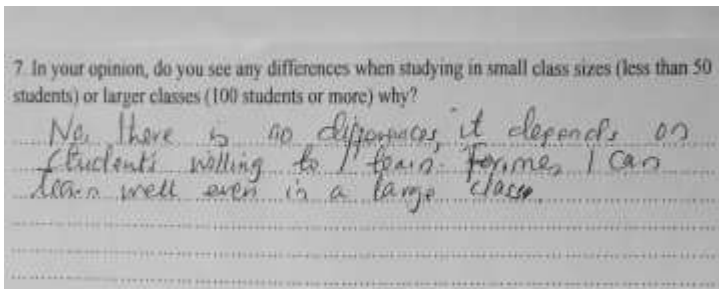 7. In your opinion, do you see any differences when studying in small class sizes (less than 50
students) or larger classes (100 students or more) why?
No, there is no differences, it depends on
students willing to learn. For me, I can
learn well even in a large class.